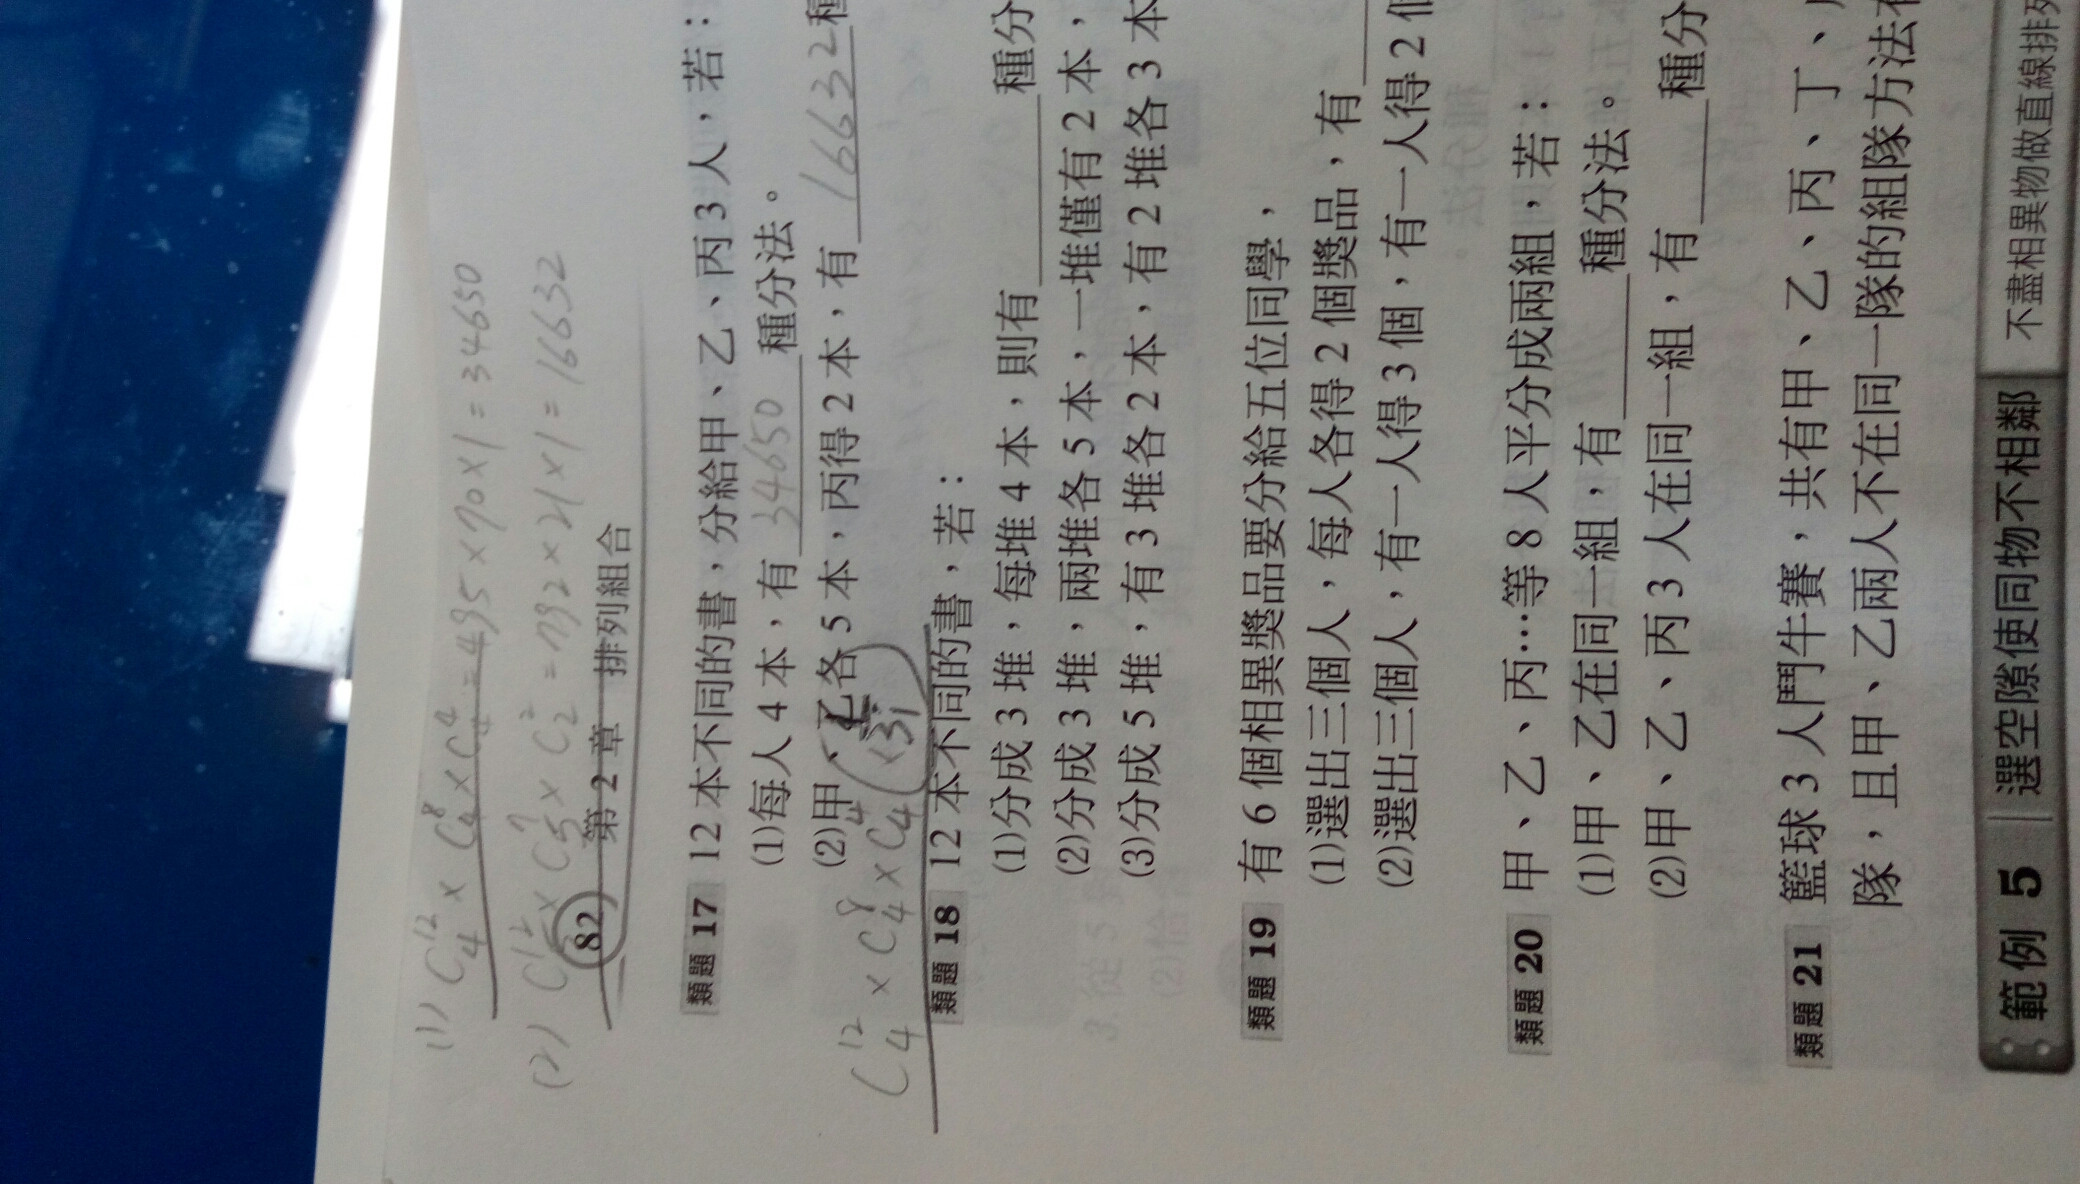 (1) C₄¹² × C₄⁸ × C₄⁴ = 495 × 70 × 1 = 34650
(2) C₅¹² × C₅⁷ × C₂² = 792 × 21 × 1 = 16632
82 第 2 章 排列組合
類題 17 12 本不同的書，分給甲、乙、丙 3 人，若：
(1)每人 4 本，有 34650 種分法。
(2)甲、乙各 5 本，丙得 2 本，有 16632 種
C₄¹² × C₄⁸ × C₄⁴ (×3!
類題 18 12 本不同的書，若：
(1)分成 3 堆，每堆 4 本，則有 種分
(2)分成 3 堆，兩堆各 5 本，一堆僅有 2 本，
(3)分成 5 堆，有 3 堆各 2 本，有 2 堆各 3 本
類題 19 有 6 個相異獎品要分給五位同學，
(1)選出三個人，每人各得 2 個獎品，有
(2)選出三個人，有一人得 3 個，有一人得 2 個
類題 20 甲、乙、丙…等 8 人平分成兩組，若：
(1)甲、乙在同一組，有 種分法。
(2)甲、乙、丙 3 人在同一組，有 種分
類題 21 籃球 3 人鬥牛賽，共有甲、乙、丙、丁、
隊，且甲、乙兩人不在同一隊的組隊方法有
範例 5 選空隙使同物不相鄰 不盡相異物做直線排列